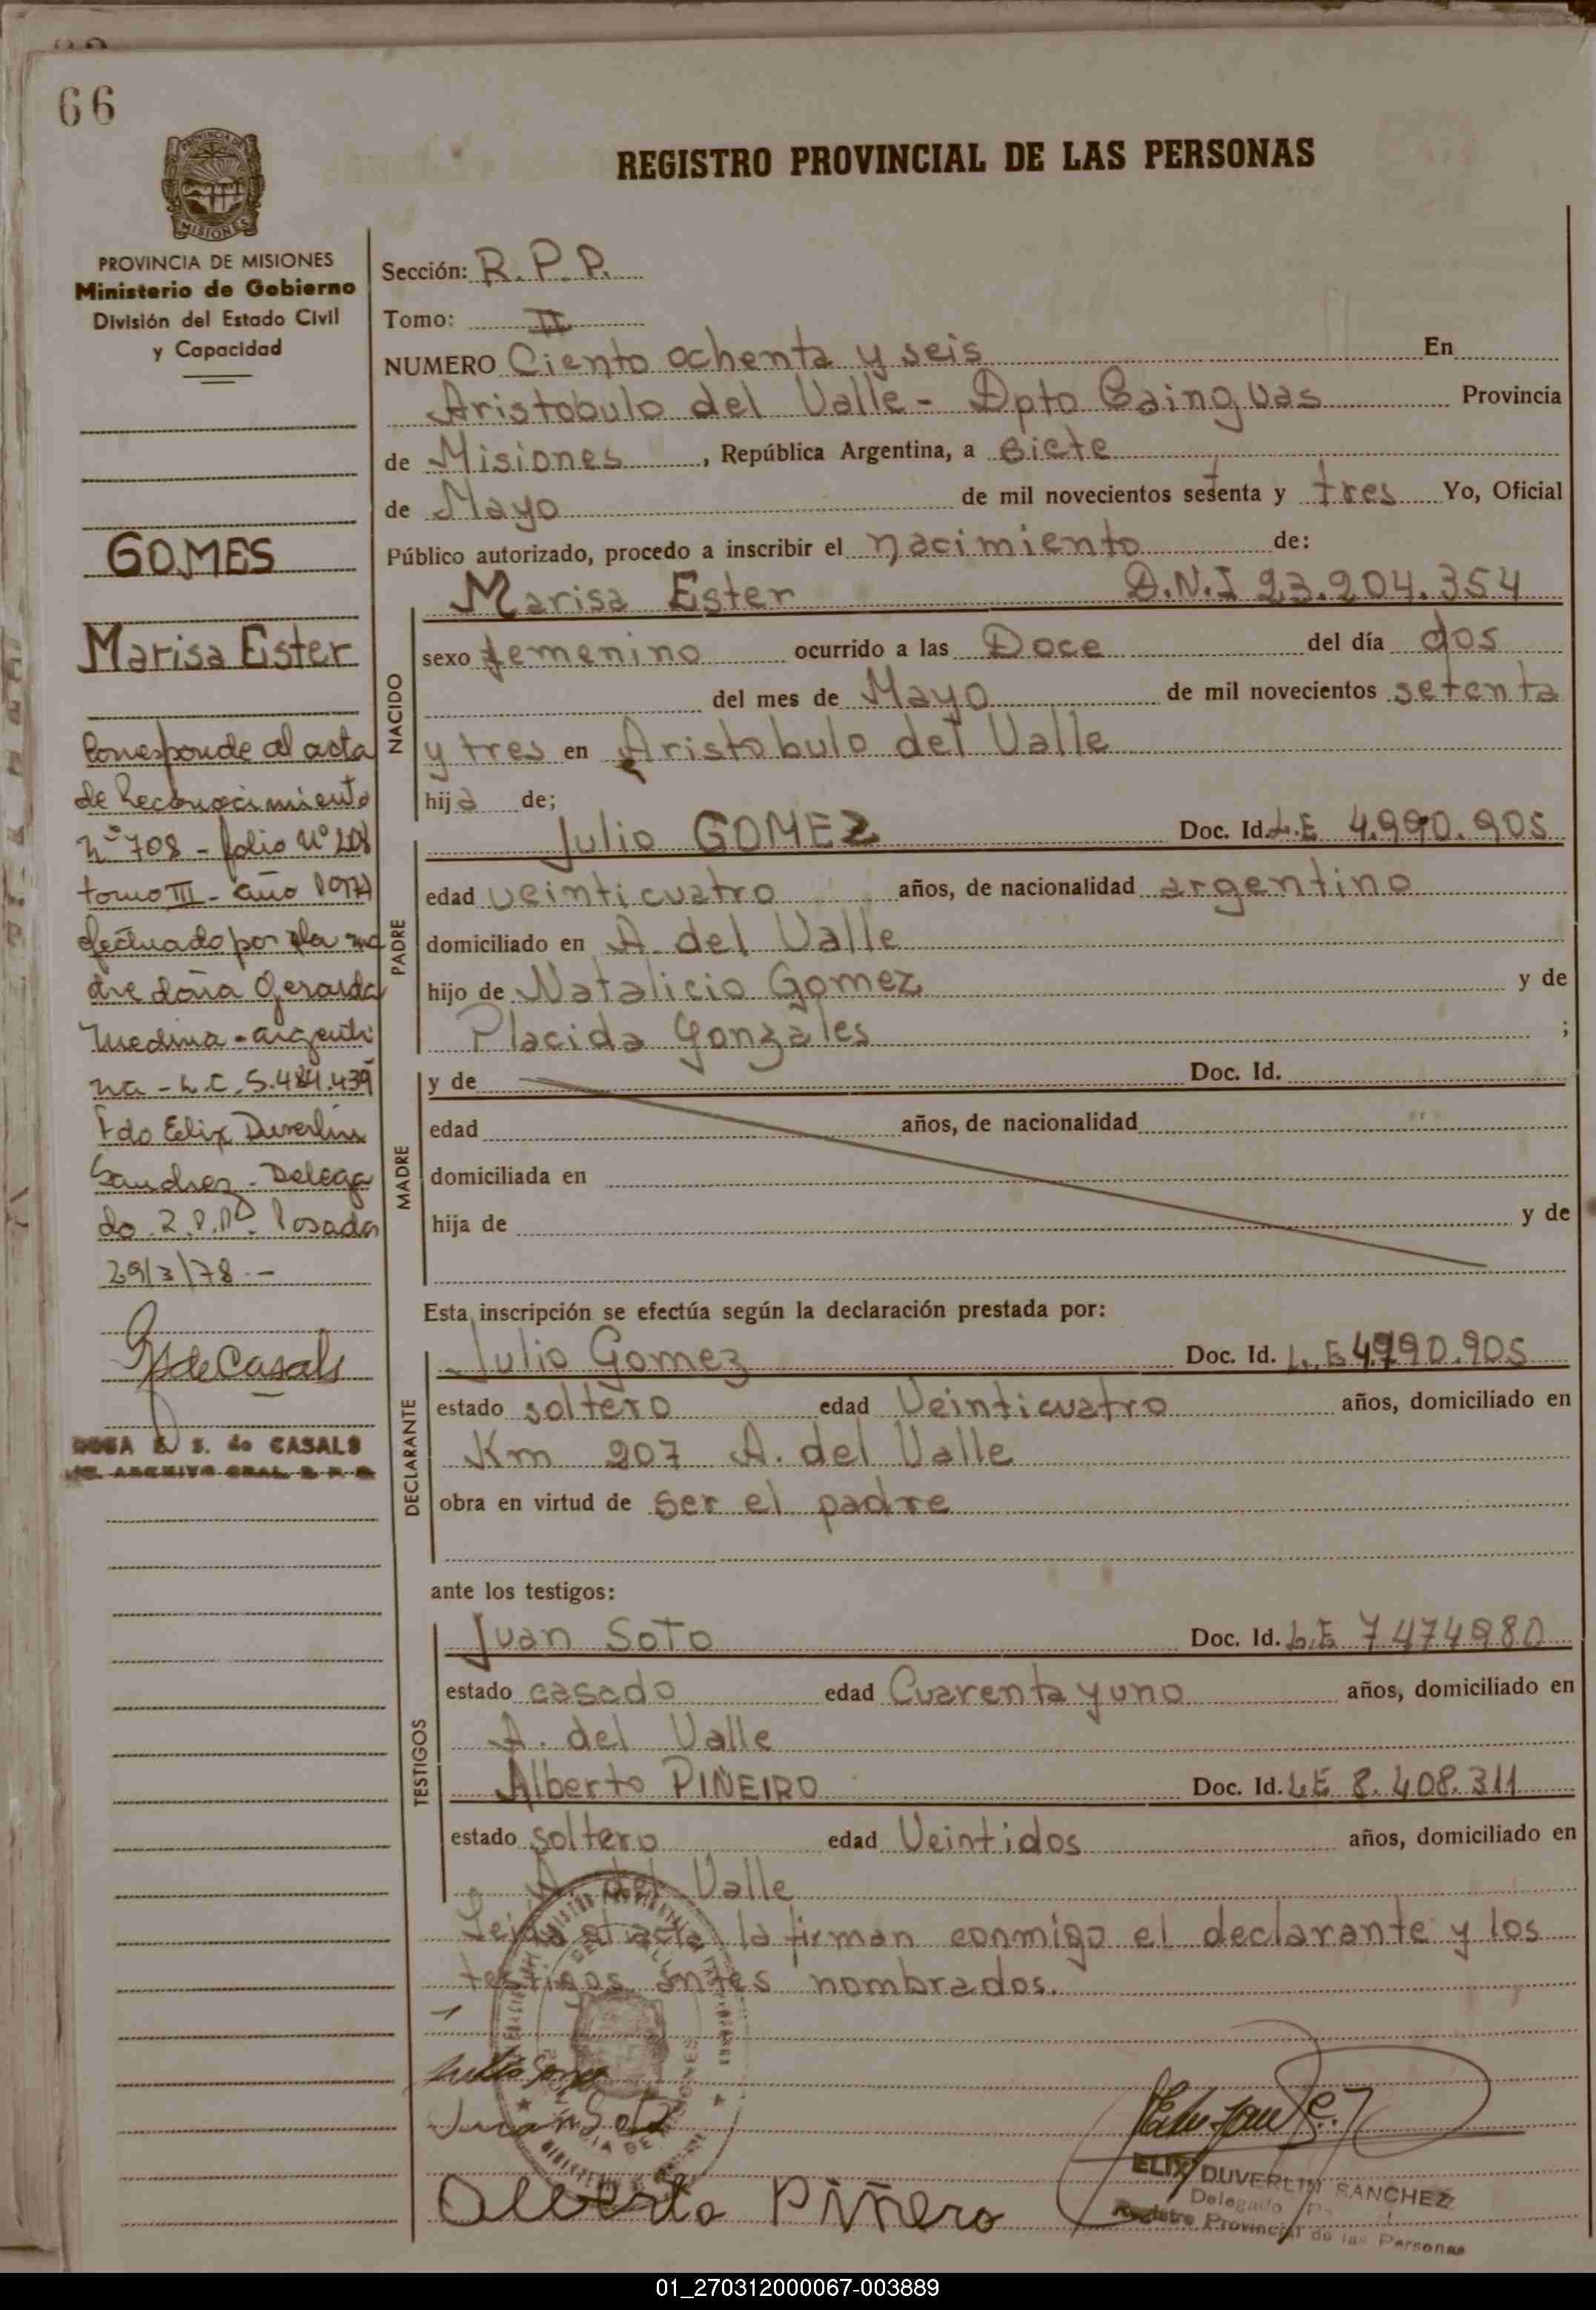 66
PROVINCIA DE MISIONES
REGISTRO PROVINCIAL DE LAS PERSONAS
PROVINCIA DE MISIONES
Ministerio de Gobierno
División del Estado Civil
y Capacidad
GOMES
Marisa Ester
Corresponde al acta
de Reconocimiento
Nº 708 - folio Nº 208
tomo III - año 1977
efectuado por la ma
dre doña Gerarda
Medina - argenti
na - L.C. 5.484.439
Fdo Elix Duverlin
Sanchez - Delega
do R.P.P. Posadas
29/3/78 -
de Casals
S. de CASALS
Sección: R.P.P.
Tomo: II
NUMERO Ciento ochenta y seis En
Aristobulo del Valle - Dpto Cainguas Provincia
de Misiones, República Argentina, a siete
de Mayo de mil novecientos setenta y tres Yo, Oficial
Público autorizado, procedo a inscribir el nacimiento de:
NACIDO
Marisa Ester D.N.I 23.204.354
sexo femenino ocurrido a las Doce del día dos
del mes de Mayo de mil novecientos setenta
y tres en Aristobulo del Valle
hija de;
PADRE
Julio GOMEZ Doc. Id. L.E 4.990.905
edad veinticuatro años, de nacionalidad argentino
domiciliado en A. del Valle
hijo de Natalicio Gomez y de
Placida Gonzales ;
MADRE
y de Doc. Id.
edad años, de nacionalidad
domiciliada en
hija de y de
Esta inscripción se efectúa según la declaración prestada por:
DECLARANTE
Julio Gomez Doc. Id. L.E 4.990.905
estado soltero edad Veinticuatro años, domiciliado en
Km 207 A. del Valle
obra en virtud de ser el padre
ante los testigos:
TESTIGOS
Juan SOTO Doc. Id. L.E 7474980
estado casado edad Cuarenta y uno años, domiciliado en
A. del Valle
Alberto PIÑEIRO Doc. Id. L.E 8.408.311
estado soltero edad Veintidos años, domiciliado en
A. del Valle
Leida el acta la firman conmigo el declarante y los
testigos antes nombrados.
Juan Soto
Alberto Piñero
ELIX DUVERLIN SANCHEZ
Delegado
Registro Provincial de las Personas
01_270312000067-003889